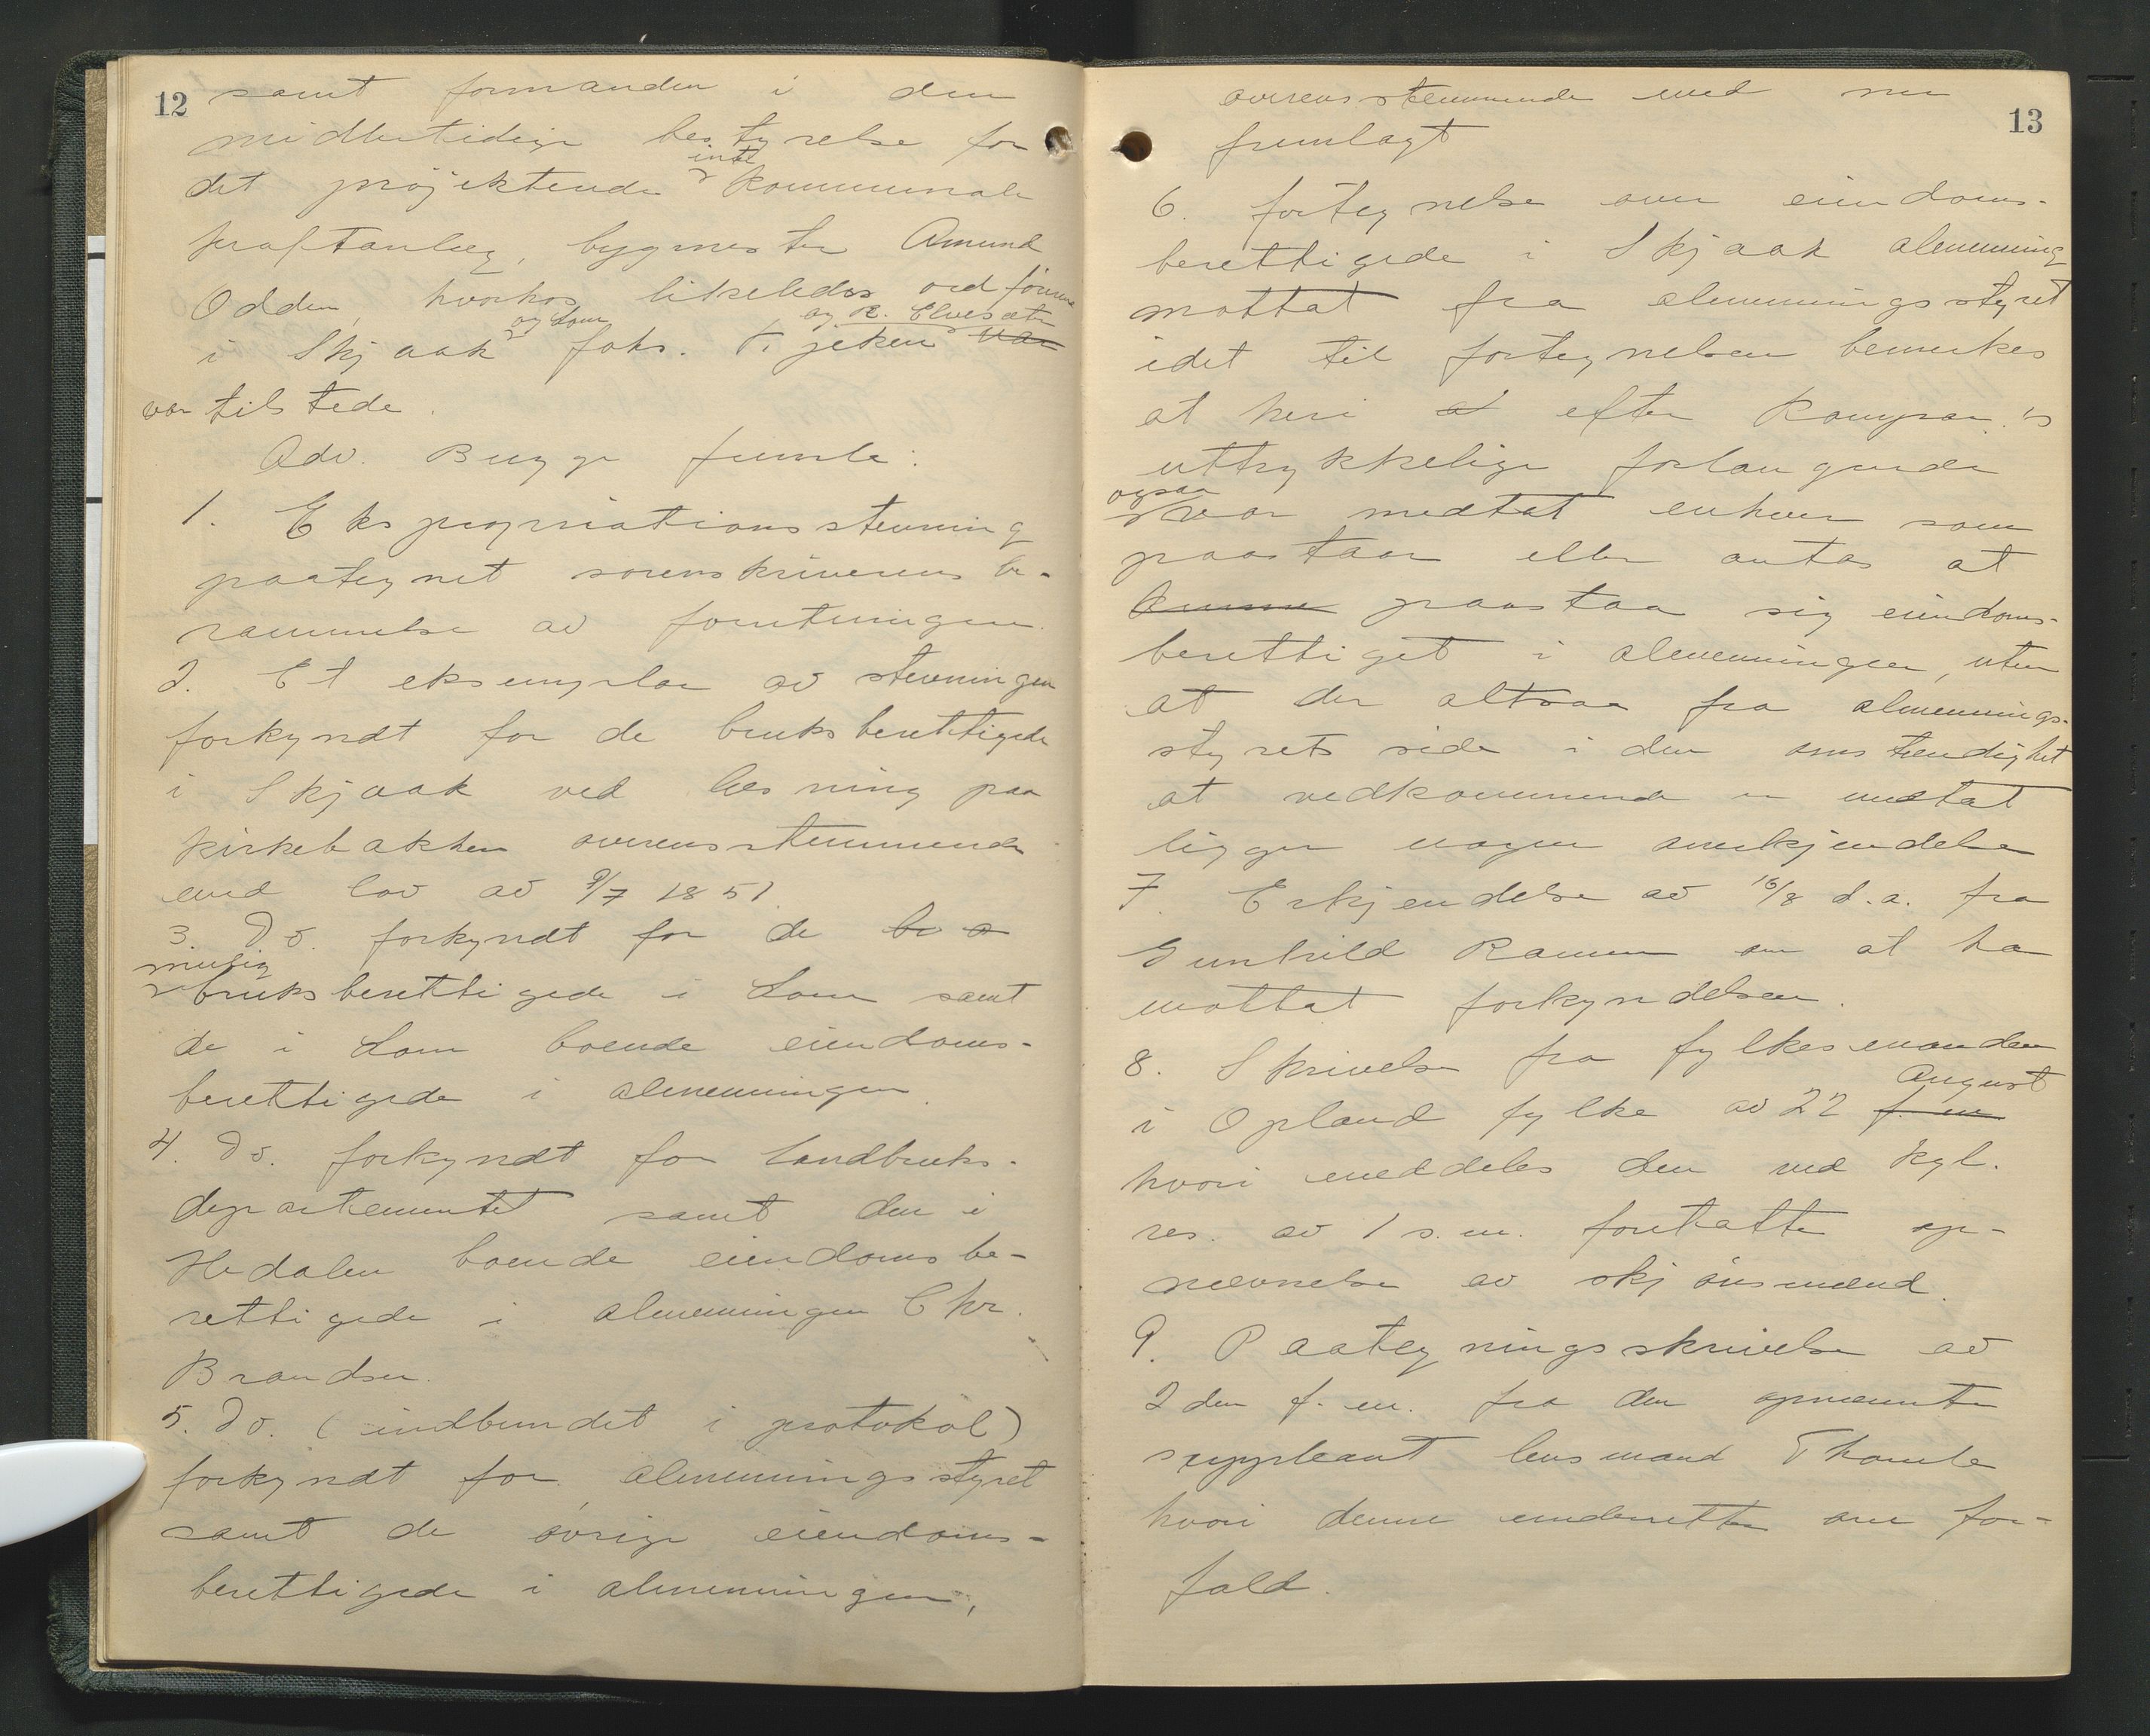 12
samt formanden i den
midlertidige bestyrelse for
det projekterende inter kommunale
kraftanlæg, bygmester Amund
Odden, hvorhos likeledes ordførerne
i Skjaak og Lom foks. T. jeken og R. Elvesæter var
var tilstede.
Adv. Bugge fremla:
1. Ekspropriationsstevning
paategnet sorenskriverens be-
rammelse av forretningen.
2. Et eksemplar av stevningen
forkyndt for de bruksberettigede
i Skjaak ved læsning paa
kirkebakken overensstemmende
med lov av 9/7 1851.
3. Do. forkyndt for de
mulig bruksberettigede i Lom samt
de i Lom boende eiendoms-
berettigede i almenningen.
4. Do. forkyndt for Landbruks-
departementet samt den i
Hedalen boende eiendomsbe-
rettigede i almenningen Chr.
Brandsen.
5. Do. (indbundet i protokol)
forkyndt for almenningsstyret
samt de øvrige eiendoms-
berettigede i almenningen,
13
overensstemmende med nu
fremlagt
6. fortegnelse over eiendoms-
berettigede i Skjaak almenning
mottat fra almenningsstyret
idet til fortegnelsen bemerkes
at heri at efter Kompar.'s
uttrykkelige forlangende
ogsaa var medtat enhver som
paastaar eller antas at
kunne paastaa sig eiendoms-
berettiget i almenningen, uten
at der altsaa fra almennings-
styrets side i den omstendighet
at vedkommende er medtat
ligger nogen anerkjendelse
7. Erkjendelse av 16/8 d.a. fra
Gunhild Ramen om at ha
mottat forkyndelsen.
8. Skrivelse fra fylkesmanden
i Opland fylke av 22 f. m. August
hvori meddeles den ved kgl.
res. av 1 s.m. foretatte op-
nævnelse av skjønsmænd.
9. Paategningsskrivelse av
2den f.m. fra den opnævnte
suppleant lensmand Thomle
hvori denne underretter om for-
fald.